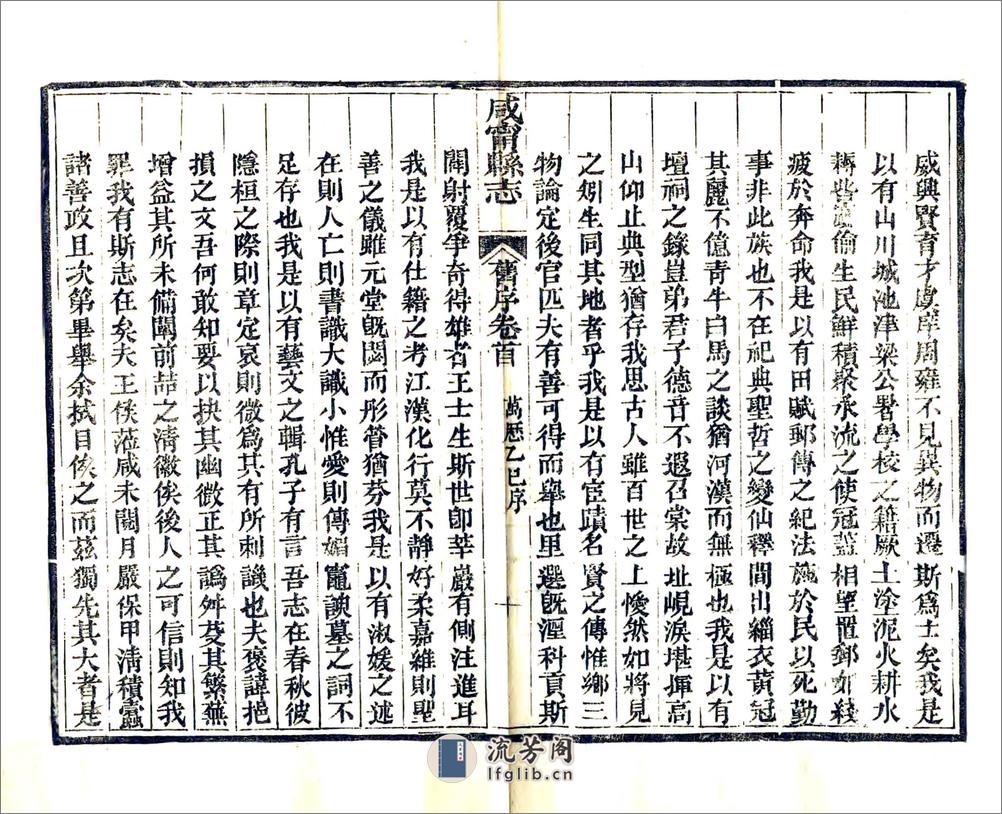 威興賢育才虞庠周雍不見異物而遷斯爲士矣我是
以有山川城池津梁公署學校之籍厥土塗泥火耕水
耨呰窳偷生民鮮積聚承流之使冠蓋相望置郵如綫
疲於奔命我是以有田賦郵傳之紀法施於民以死勤
事非此族也不在祀典聖哲之變仙釋間出緇衣黃冠
其麗不億靑牛白馬之談猶河漢而無極也我是以有
壇祠之錄豈弟君子德音不遐召棠故址峴淚堪揮高
山仰止典型猶存我思古人雖百世之上愾然如將見
之矧生同其地者乎我是以有宦蹟名賢之傳惟鄉三
物論定後官匹夫有善可得而舉也里選旣湮科貢斯
咸甯縣志
舊序卷首
萬歷乙巳序
十
闢射覆爭奇得雄者王士生斯世卽莘巖有側注進耳
我是以有仕籍之考江漢化行莫不靜好柔嘉維則聖
善之儀雖元堂旣閟而形管猶芬我是以有淑媛之述
在則人亡則書識大識小惟愛則傳媚竈諛墓之詞不
足存也我是以有藝文之輯孔子有言吾志在春秋彼
隱桓之際則章定哀則微爲其有所刺譏也夫褒諱挹
損之文吾何敢知要以抉其幽微正其譌舛芟其繁蕪
增益其所未備闡前喆之淸徽俟後人之可信則知我
罪我有斯志在矣夫王侯蒞咸未閱月嚴保甲淸積蠹
諸善政且次第畢舉余拭目俟之而茲獨先其大者是
流芳阁
lfglib.cn